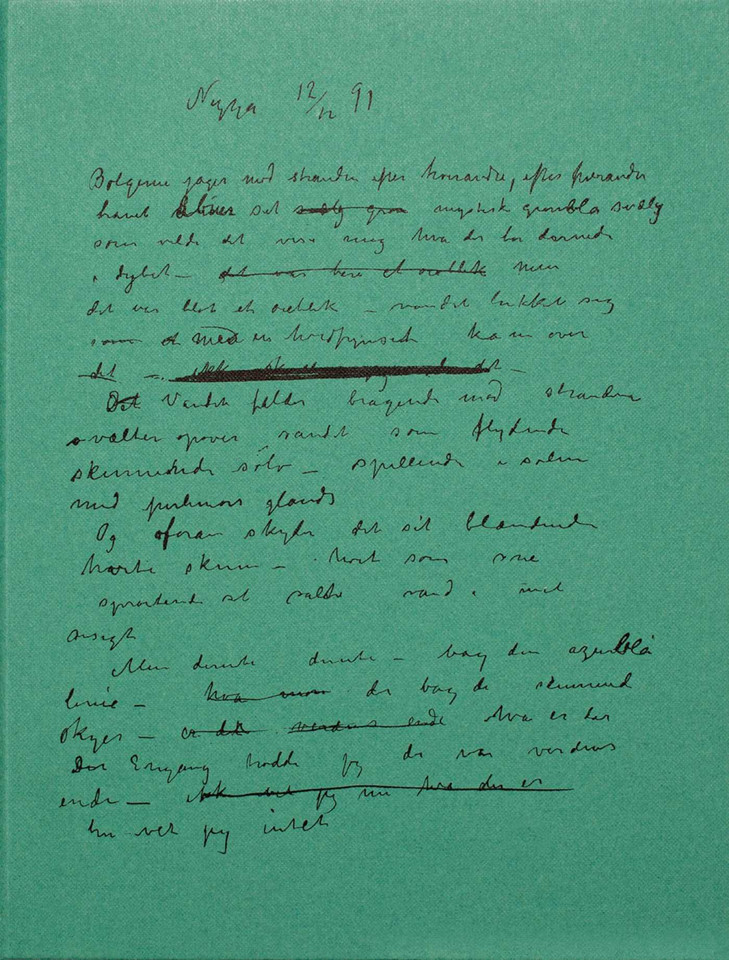 Nizza 12/12 91
Bølgerne jager mod stranden efter hverandre, efter hverandre
havet sit mystisk grønblå svælg
som vilde det vise mig hva der bor dernede
i dybet – men
det var blot et øieblik – vandet lukket sig
som med en hvid over
det –
Det Vandet falder bragende mod stranden
vælter opover sandet som flydende
skinnende sølv – spillende i solen
med perlemors glands
Og foran skyder det sit blændende
hvite skum – hvit som sne
sprøitende sit salte vand i mit
ansigt
Men derute derute – bag den azurblå
linie – hva der bag de skinnend
skyer – er det verdens ende Hva er der
Engang trodde jeg der var verdens
ende – jeg nu hva der er
nu vet jeg intet